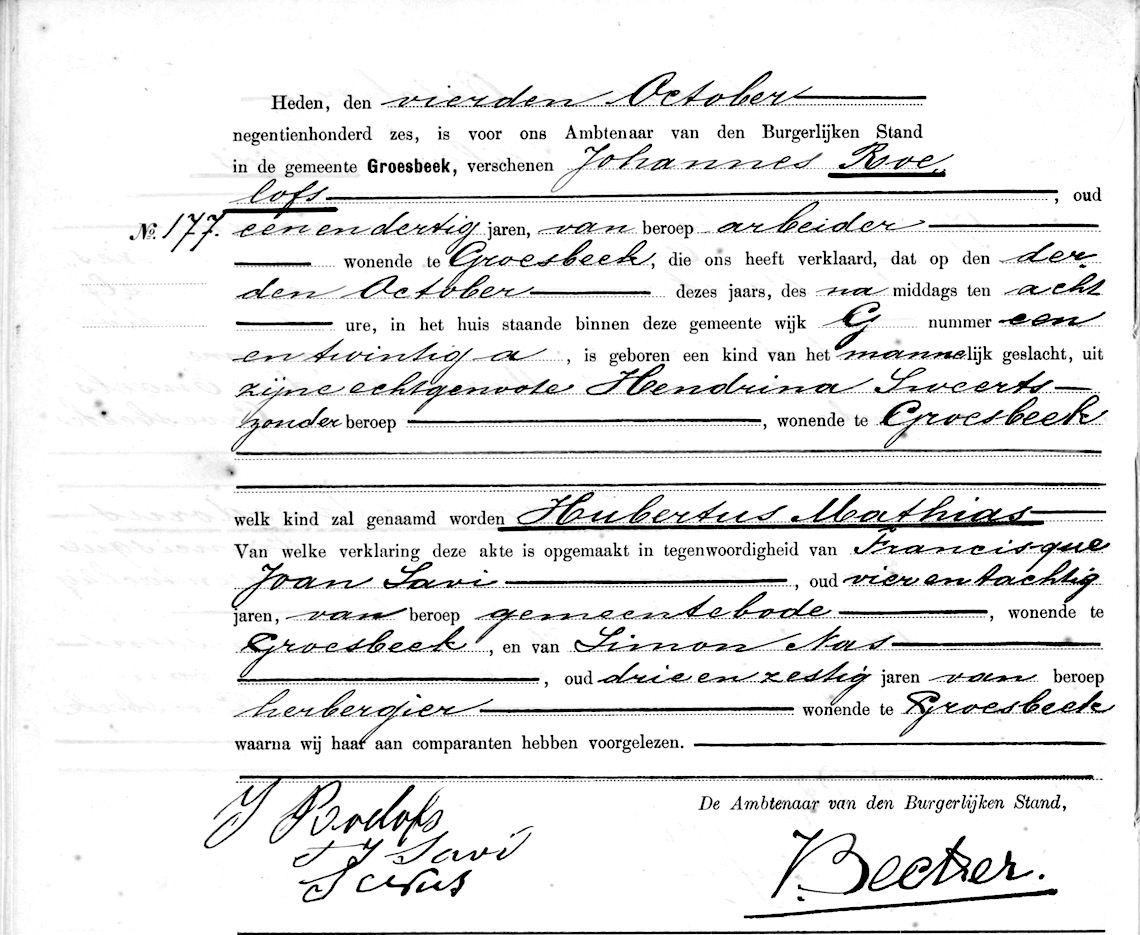 Heden, den vierden October
negentienhonderd zes, is voor ons Ambtenaar van den Burgerlijken Stand
in de gemeente Groesbeek, verschenen Johannes Roe„
lofs, oud
No. 177. een en dertig jaren, van beroep arbeider
wonende te Groesbeek, die ons heeft verklaard, dat op den der„
den October dezes jaars, des na middags ten acht
ure, in het huis staande binnen deze gemeente wijk G nummer een
en twintig a, is geboren een kind van het mannelijk geslacht, uit
zijne echtgenoote Hendrina Sweerts
zonder beroep, wonende te Groesbeek
welk kind zal genaamd worden Hubertus Mathias
Van welke verklaring deze akte is opgemaakt in tegenwoordigheid van Francisque
Joan Savi, oud vier en tachtig
jaren, van beroep gemeentebode, wonende te
Groesbeek, en van Simon Nas
, oud drie en zestig jaren van beroep
herbergier wonende te Groesbeek
waarna wij haar aan comparanten hebben voorgelezen.
De Ambtenaar van den Burgerlijken Stand,
J Roelofs
F J Savi
S Nas